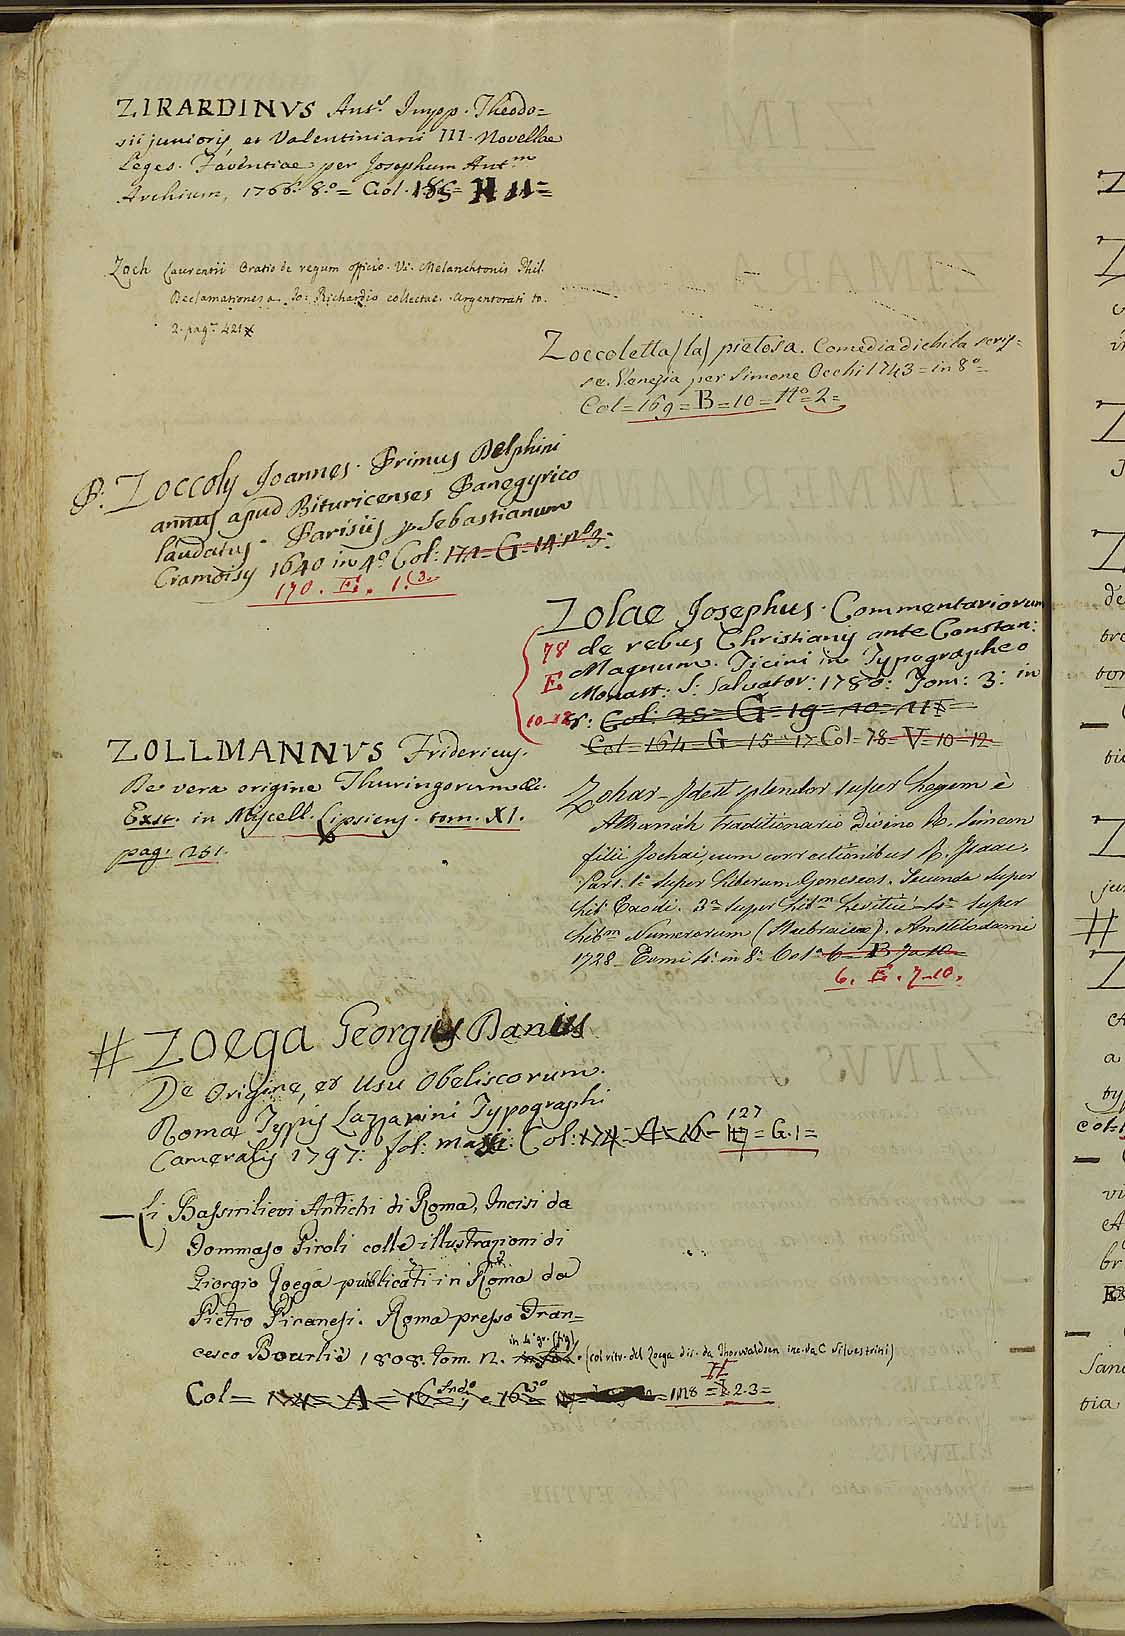 ZIRARDINVS Ant.s Impp. Theodo=
sii junioris, et Valentiniani III. Novellae
Leges. Faventiae per Josephum Ant.m
Archium, 1766. 8.o = Col. 186 = H 11 =
Zach Laurentii Oratio de regum officio. Vi. Melanchtonis Phil.
Declamationes a Jo: Richardio collectae. Argentorati to.
2. pag.a 421
Zoccoletta (la) pietosa. Comedia di chi la scris=
se. Venezia per Simone Occhi 1743 = in 8o =
Col = 169 = B = 10 = No 2 =
P. Zoccoly Joannes. Primus Delphini
annus apud Bituricenses Panegyrico
laudatus. Parisiis p Sebastianum
Cramoisy 1640 in 4o Col: 171 = G = 14: no 3:
170. E. 1. (3.
Zolae Josephus. Commentariorum
78 de rebus Christianis ante Constan:
E Magnum. Ticini in Typographeo
Monast: S: Salvator: 1780: Tom: 3: in
10-12 8: Col: 35 = G = 19 = 10 = 11
Col = 164 = G = 15 = 17 Col = 78 = V = 10 = 12 =
ZOLLMANNVS Fridericus.
De vera origine Thuringorum &c.
Exst. in Miscell. Lipsiens. tom. XI.
pag. 251.
Zohar = Idest splendor super Legem è
Athanàh traditionario Divino R. Simeon
filii Jochai, cum correctionibus R. Isaac.
Pars. 1a super Liberum Geneseos. Secunda super
Lib Exodi. 3a super Libm Levitici 4a super
Libm Numerorum (Haebraice). Amstelodami
1728_ Tomi 4: in 8o Col a 6 = B 7 a 10 =
6. E. 7-10.
# Zoega Georgius Danius
De Origine, et Usu Obeliscorum.
Romae Typis Lazzarini Typographi
Cameralis 1797: fol: mass: Col: 174 = A = 16 = 127 = G. 1 =
— Li Bassirilievi Antichi di Roma, Incisi da
Tommaso Piroli colle illustrazioni di
Giorgio Zoega publicati in Roma da
Pietro Piranesi. Roma presso Fran=
cesco Bourliè 1808. tom. 2. in 4o gr. (fig) (col ritr. del Zoega dis. da Thorwaldsen inc. da C Silvestrini)
Col = A = 16 = 118 = H 2.3 =